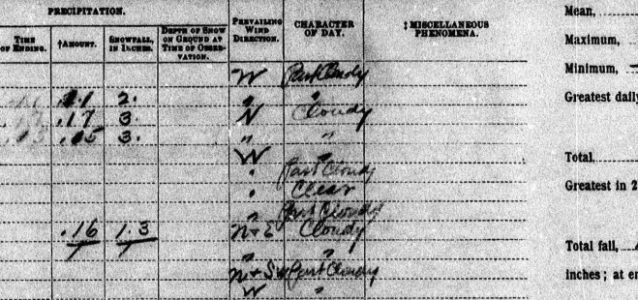 PRECIPITATION.
TIME OF ENDING.
†AMOUNT.
SNOWFALL, IN INCHES.
DEPTH OF SNOW ON GROUND AT TIME OF OBSERVATION.
PREVAILING WIND DIRECTION.
CHARACTER OF DAY.
‡MISCELLANEOUS PHENOMENA.
W Part Cloudy
.11 2. " "
.17 3. N Cloudy
.05 3. " "
W "
" Part Cloudy
" Clear
" Part Cloudy
.16 1.3 N+E Cloudy
" "
N+SW Part Cloudy
W "
Mean,
Maximum,
Minimum,
Greatest daily
Total
Greatest in 2
Total fall,
inches; at en